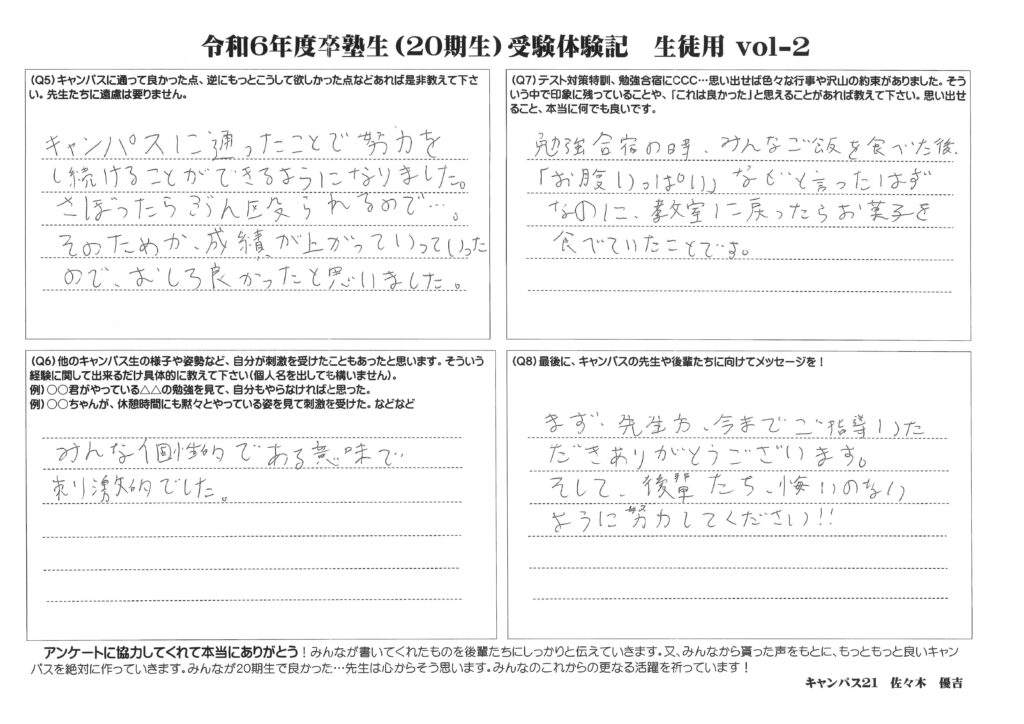 令和6年度卒塾生(20期生)受験体験記　生徒用 vol-2
(Q5)キャンパスに通って良かった点、逆にもっとこうして欲しかった点などあれば是非教えて下さ
い。先生たちに遠慮は要りません。
キャンパスに通ったことで努力を
し続けることができるようになりました。
さぼったらぶん殴られるので…。
そのためか、成績が上がっていっていった
ので、むしろ良かったと思いました。
(Q6)他のキャンパス生の様子や姿勢など、自分が刺激を受けたこともあったと思います。そういう
経験に関して出来るだけ具体的に教えて下さい(個人名を出しても構いません)。
例)○○君がやっている△△の勉強を見て、自分もやらなければと思った。
例)○○ちゃんが、休憩時間にも黙々とやっている姿を見て刺激を受けた。などなど
みんな個性的である意味で
刺激的でした。
(Q7)テスト対策特訓、勉強合宿にCCC…思い出せば色々な行事や沢山の約束がありました。そう
いう中で印象に残っていることや、「これは良かった」と思えることがあれば教えて下さい。思い出せ
ること、本当に何でも良いです。
勉強合宿の時、みんなご飯を食べた後、
「お腹いっぱい」などと言ったはず
なのに、教室に戻ったらお菓子を
食べていたことです。
(Q8)最後に、キャンパスの先生や後輩たちに向けてメッセージを!
まず、先生方、今までご指導いた
だきありがとうございます。
そして、後輩たち、悔いのない
ように努力してください!!
アンケートに協力してくれて本当にありがとう!みんなが書いてくれたものを後輩たちにしっかりと伝えていきます。又、みんなから貰った声をもとに、もっともっと良いキャン
パスを絶対に作っていきます。みんなが20期生で良かった…先生は心からそう思います。みんなのこれからの更なる活躍を祈っています!
キャンパス21　佐々木　優吉